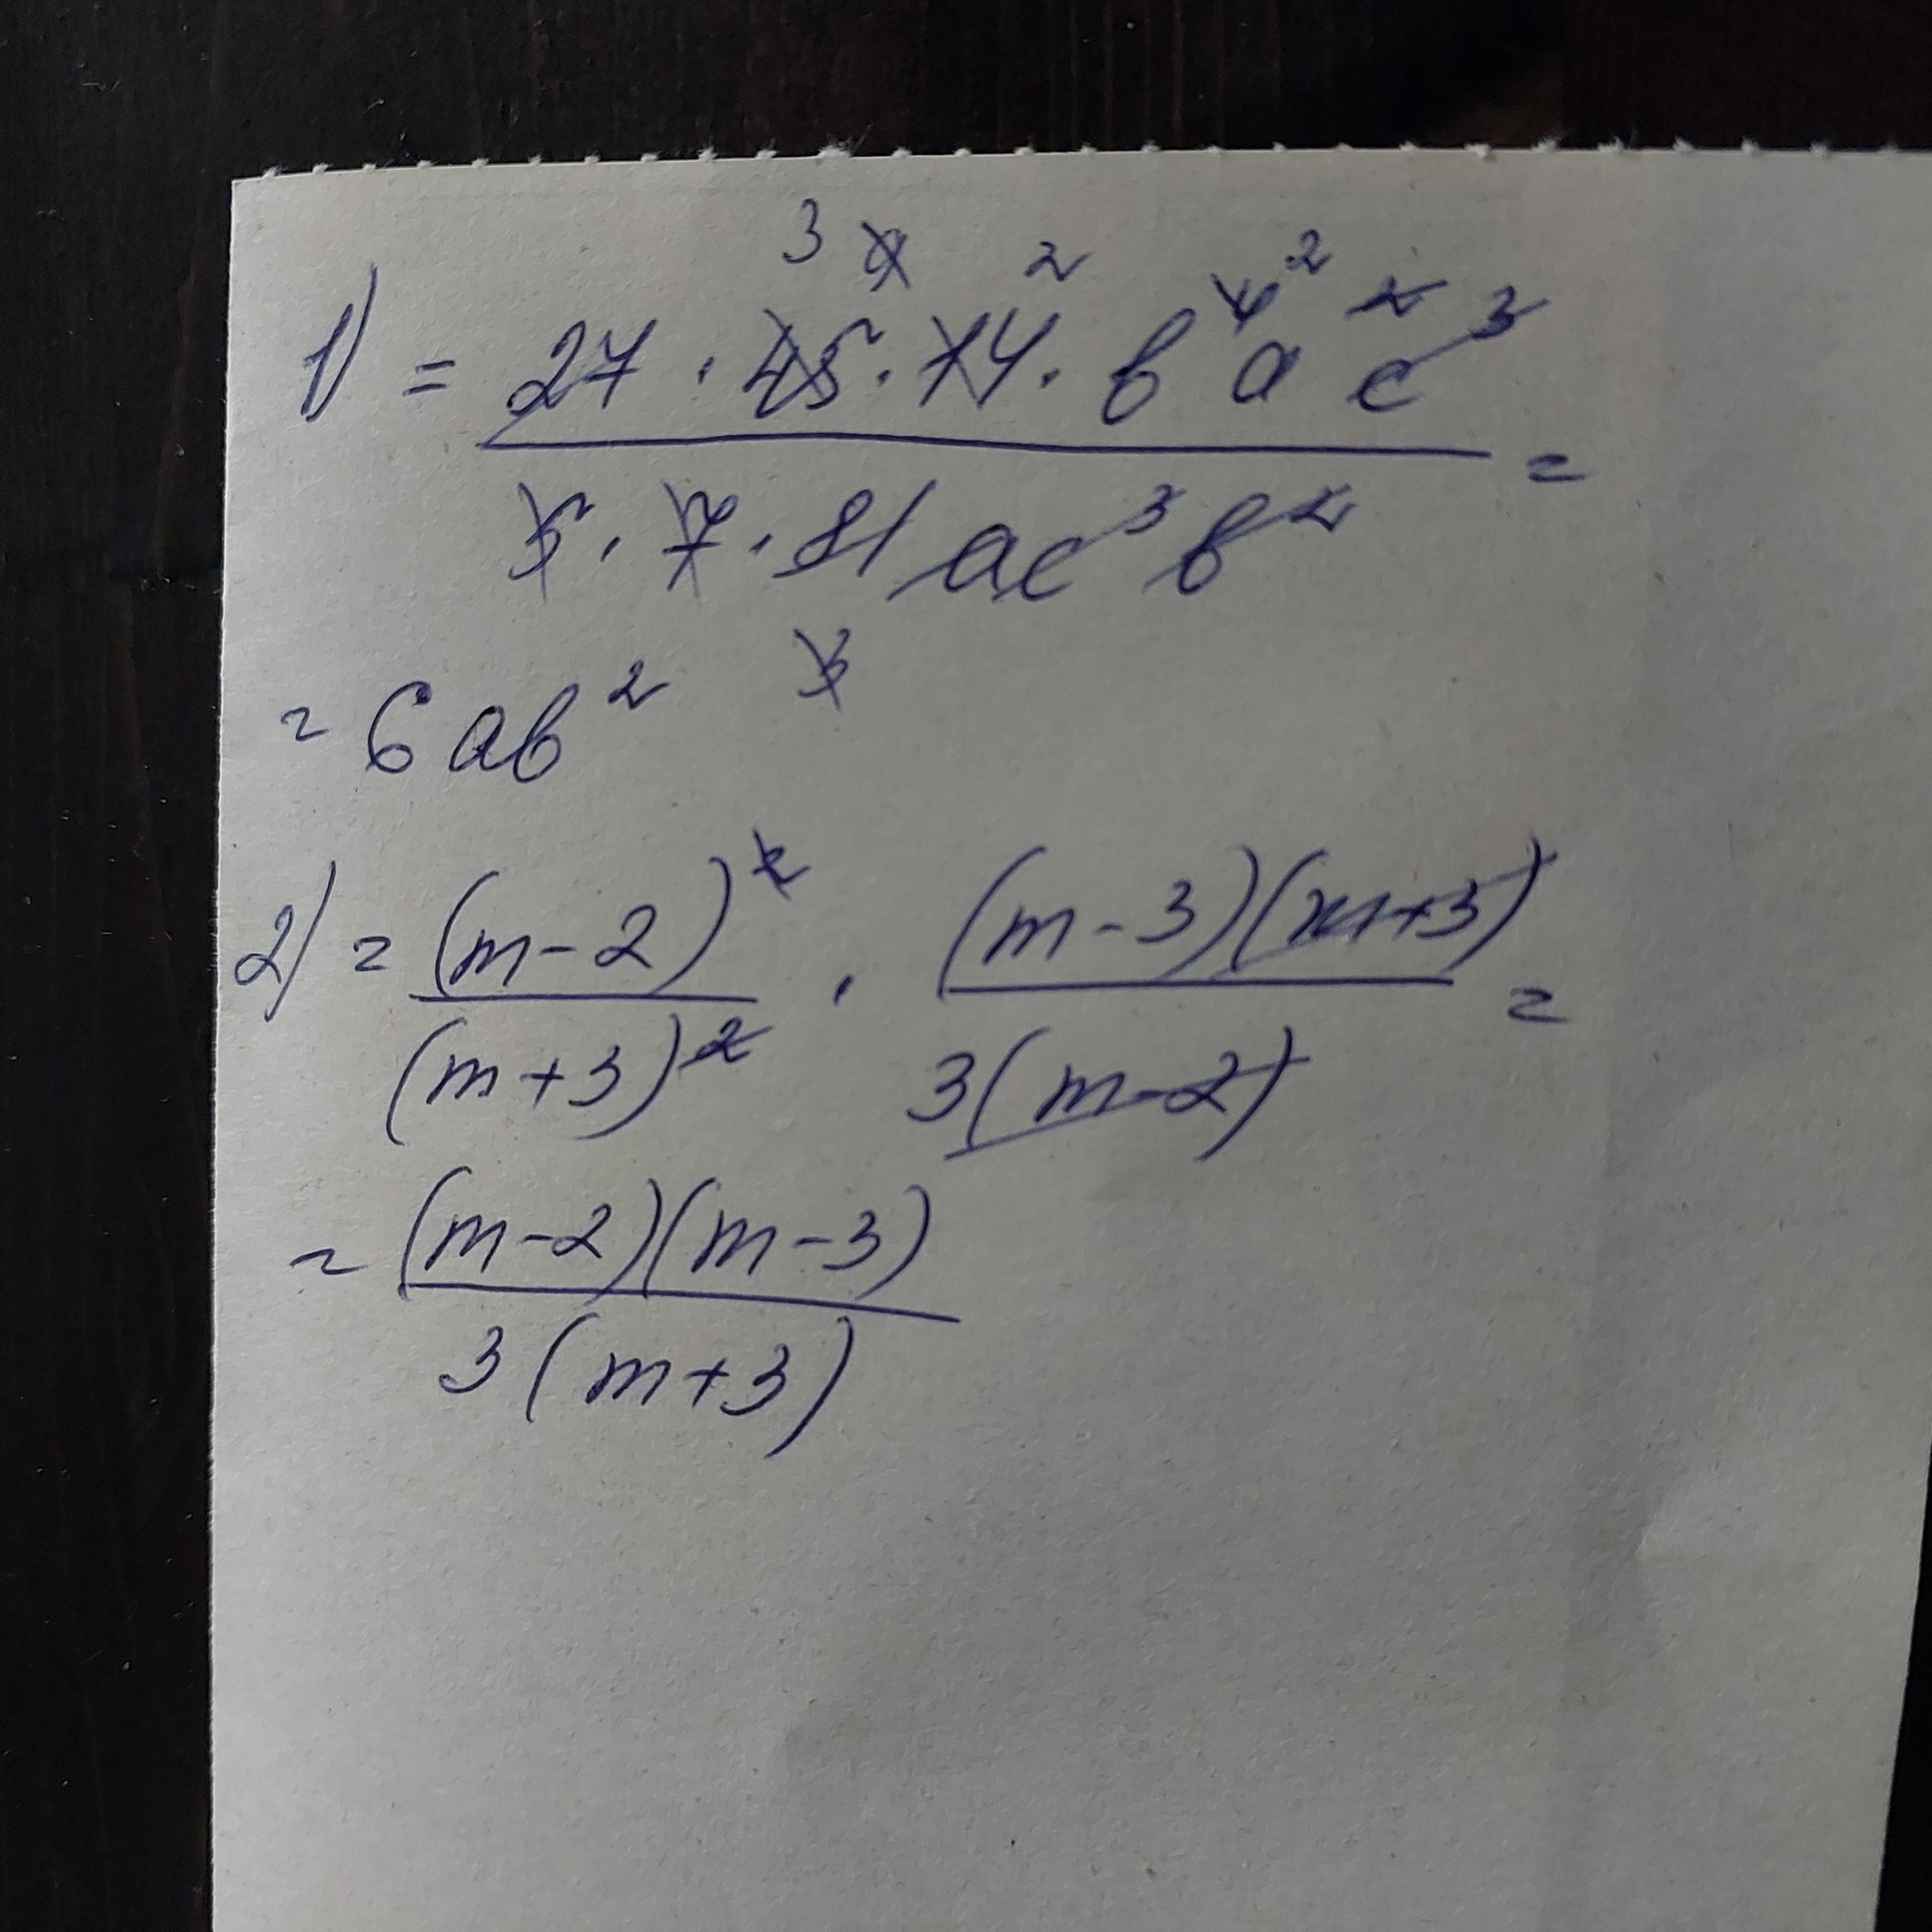 3 9 2
1) = 27 · 45 · 14 · b⁴ a² c³ =
5 · 7 · 81 a c³ b²
3
= 6 a b²
2) = (m - 2)² · (m - 3)(m + 3) =
(m + 3)² 3(m - 2)
= (m - 2)(m - 3)
3(m + 3)